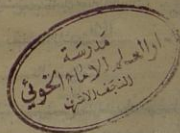 مدرسة
دار العلم للامام الخوئي
النجف الاشرف